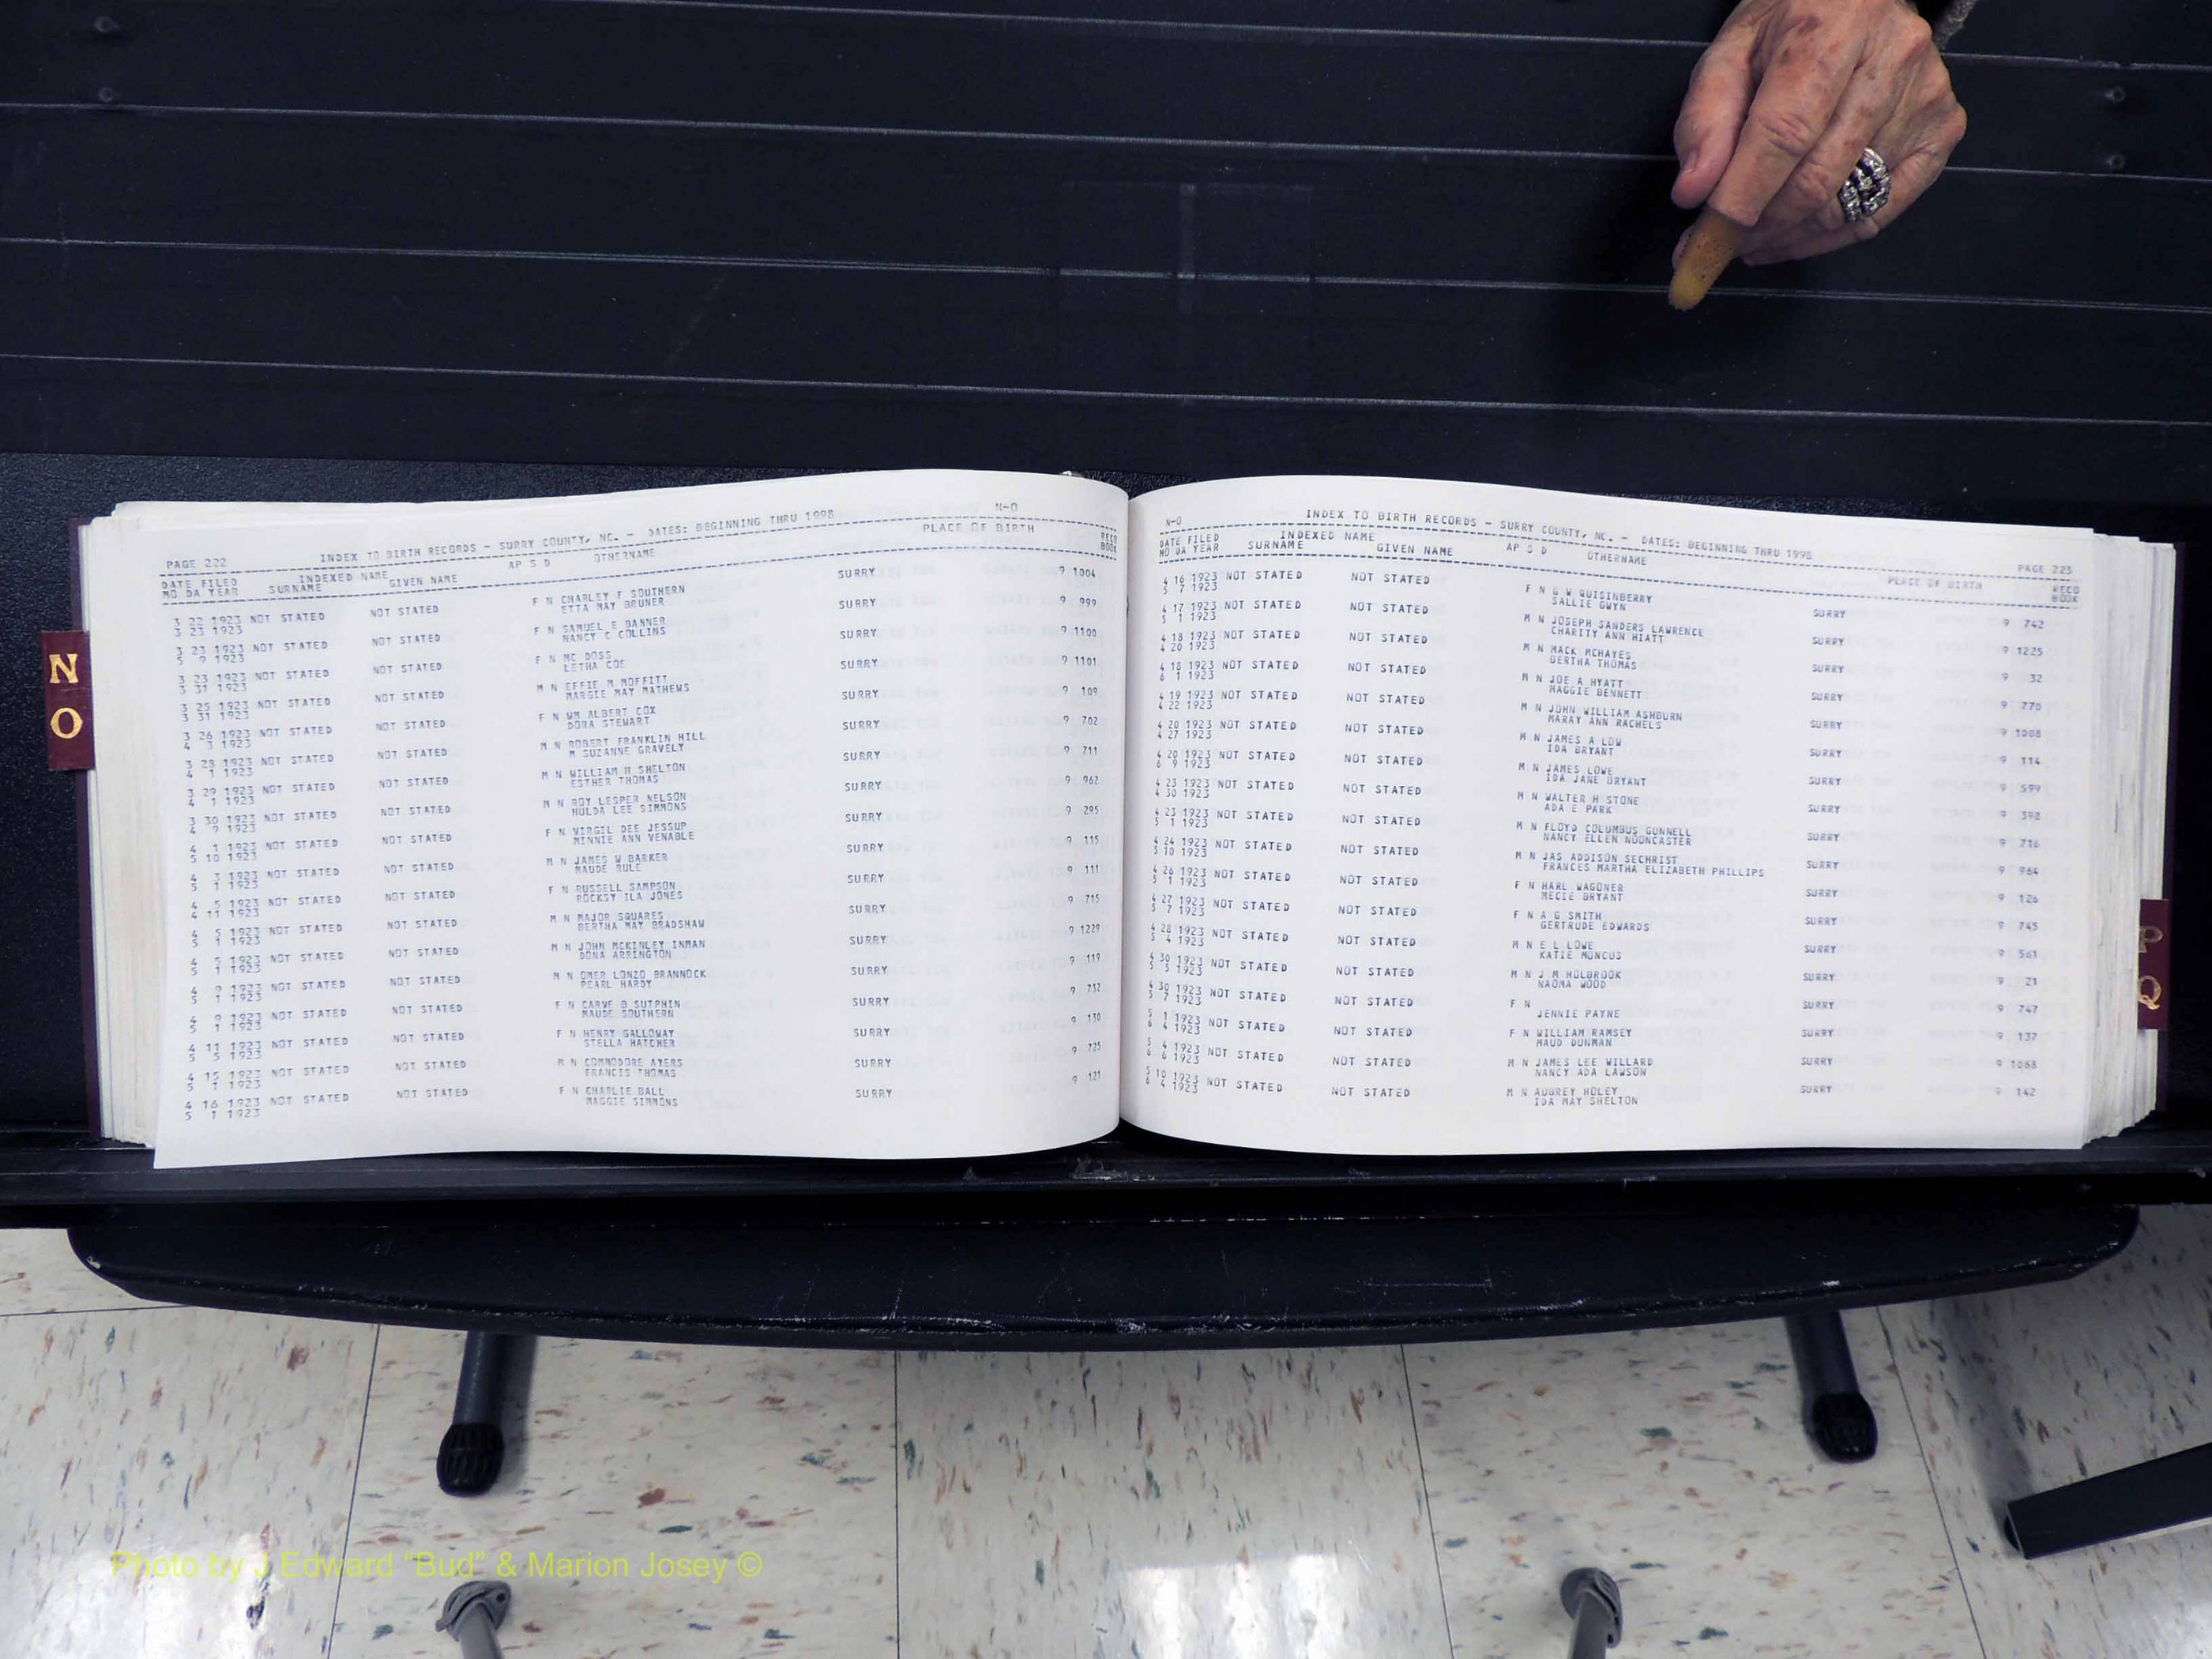 N-O
PAGE 222 INDEX TO BIRTH RECORDS - SURRY COUNTY, NC. - DATES: BEGINNING THRU 1998
DATE FILED INDEXED NAME AP S D OTHERNAME PLACE OF BIRTH RECD
MO DA YEAR SURNAME GIVEN NAME BOOK
3 22 1923 NOT STATED NOT STATED F N CHARLEY F SOUTHERN SURRY 9 1004
3 23 1923 ETTA MAY BRUNER
3 23 1923 NOT STATED NOT STATED F N SAMUEL E BANNER SURRY 9 999
5 9 1923 NANCY C COLLINS
3 23 1923 NOT STATED NOT STATED F N MC DOSS SURRY 9 1100
3 31 1923 LETHA COE
3 25 1923 NOT STATED NOT STATED M N EFFIE M MOFFITT SURRY 9 1101
3 31 1923 MARGIE MAY MATHEWS
3 26 1923 NOT STATED NOT STATED F N WM ALBERT COX SURRY 9 109
4 3 1923 DORA STEWART
3 28 1923 NOT STATED NOT STATED M N ROBERT FRANKLIN HILL SURRY 9 702
4 1 1923 M SUZANNE GRAVELY
3 29 1923 NOT STATED NOT STATED M N WILLIAM H SHELTON SURRY 9 711
4 1 1923 ESTHER THOMAS
3 30 1923 NOT STATED NOT STATED M N ROY LESPER NELSON SURRY 9 962
4 9 1923 HULDA LEE SIMMONS
4 1 1923 NOT STATED NOT STATED F N VIRGIL DEE JESSUP SURRY 9 295
5 10 1923 MINNIE ANN VENABLE
4 3 1923 NOT STATED NOT STATED M N JAMES W BARKER SURRY 9 115
5 1 1923 MAUDE RULE
4 5 1923 NOT STATED NOT STATED F N RUSSELL SAMPSON SURRY 9 111
4 11 1923 ROCKSY ILA JONES
4 5 1923 NOT STATED NOT STATED M N MAJOR SQUARES SURRY 9 715
5 1 1923 BERTHA MAY BRADSHAW
4 5 1923 NOT STATED NOT STATED M N JOHN MCKINLEY INMAN SURRY 9 1229
5 1 1923 DONA ARRINGTON
4 9 1923 NOT STATED NOT STATED M N OMER LONZO BRANNOCK SURRY 9 119
5 1 1923 PEARL HARDY
4 9 1923 NOT STATED NOT STATED F N CARVE B SUTPHIN SURRY 9 732
5 1 1923 MAUDE SOUTHERN
4 11 1923 NOT STATED NOT STATED F N HENRY GALLOWAY SURRY 9 130
5 5 1923 STELLA HATCHER
4 15 1923 NOT STATED NOT STATED M N COMMODORE AYERS SURRY 9 725
5 1 1923 FRANCIS THOMAS
4 16 1923 NOT STATED NOT STATED F N CHARLIE BALL SURRY 9 121
5 1 1923 MAGGIE SIMMONS
N-O INDEX TO BIRTH RECORDS - SURRY COUNTY, NC. - DATES: BEGINNING THRU 1998 PAGE 223
DATE FILED INDEXED NAME AP S D OTHERNAME PLACE OF BIRTH RECD
MO DA YEAR SURNAME GIVEN NAME BOOK
4 16 1923 NOT STATED NOT STATED F N G W QUISINBERRY SURRY 9 742
5 7 1923 SALLIE GWYN
4 17 1923 NOT STATED NOT STATED M N JOSEPH SANDERS LAWRENCE SURRY 9 1225
5 1 1923 CHARITY ANN HIATT
4 18 1923 NOT STATED NOT STATED M N MACK MCHAYES SURRY 9 32
4 20 1923 BERTHA THOMAS
4 18 1923 NOT STATED NOT STATED M N JOE A HYATT SURRY 9 770
6 1 1923 MAGGIE BENNETT
4 19 1923 NOT STATED NOT STATED M N JOHN WILLIAM ASHBURN SURRY 9 1008
4 22 1923 MARAY ANN RACHELS
4 20 1923 NOT STATED NOT STATED M N JAMES A LOW SURRY 9 114
4 27 1923 IDA BRYANT
4 20 1923 NOT STATED NOT STATED M N JAMES LOWE SURRY 9 599
6 9 1923 IDA JANE BRYANT
4 23 1923 NOT STATED NOT STATED M N WALTER H STONE SURRY 9 398
4 30 1923 ADA E PARK
4 23 1923 NOT STATED NOT STATED M N FLOYD COLUMBUS GUNNELL SURRY 9 716
5 1 1923 NANCY ELLEN NOONCASTER
4 24 1923 NOT STATED NOT STATED M N JAS ADDISON SECHRIST SURRY 9 964
5 10 1923 FRANCES MARTHA ELIZABETH PHILLIPS
4 26 1923 NOT STATED NOT STATED F N HARL WAGONER SURRY 9 126
5 1 1923 MECIE BRYANT
4 27 1923 NOT STATED NOT STATED F N A G SMITH SURRY 9 745
5 7 1923 GERTRUDE EDWARDS
4 28 1923 NOT STATED NOT STATED M N E L LOWE SURRY 9 561
5 4 1923 KATIE MONCUS
4 30 1923 NOT STATED NOT STATED M N J M HOLBROOK SURRY 9 21
5 5 1923 NAOMA WOOD
4 30 1923 NOT STATED NOT STATED F N SURRY 9 747
5 7 1923 JENNIE PAYNE
5 1 1923 NOT STATED NOT STATED F N WILLIAM RAMSEY SURRY 9 137
6 4 1923 MAUD DUNMAN
5 4 1923 NOT STATED NOT STATED M N JAMES LEE WILLARD SURRY 9 1068
6 6 1923 NANCY ADA LAWSON
5 10 1923 NOT STATED NOT STATED M N AUBREY HOLEY SURRY 9 142
6 4 1923 IDA MAY SHELTON
N
O
P
Q
Photo by J Edward “Bud” & Marion Josey ©